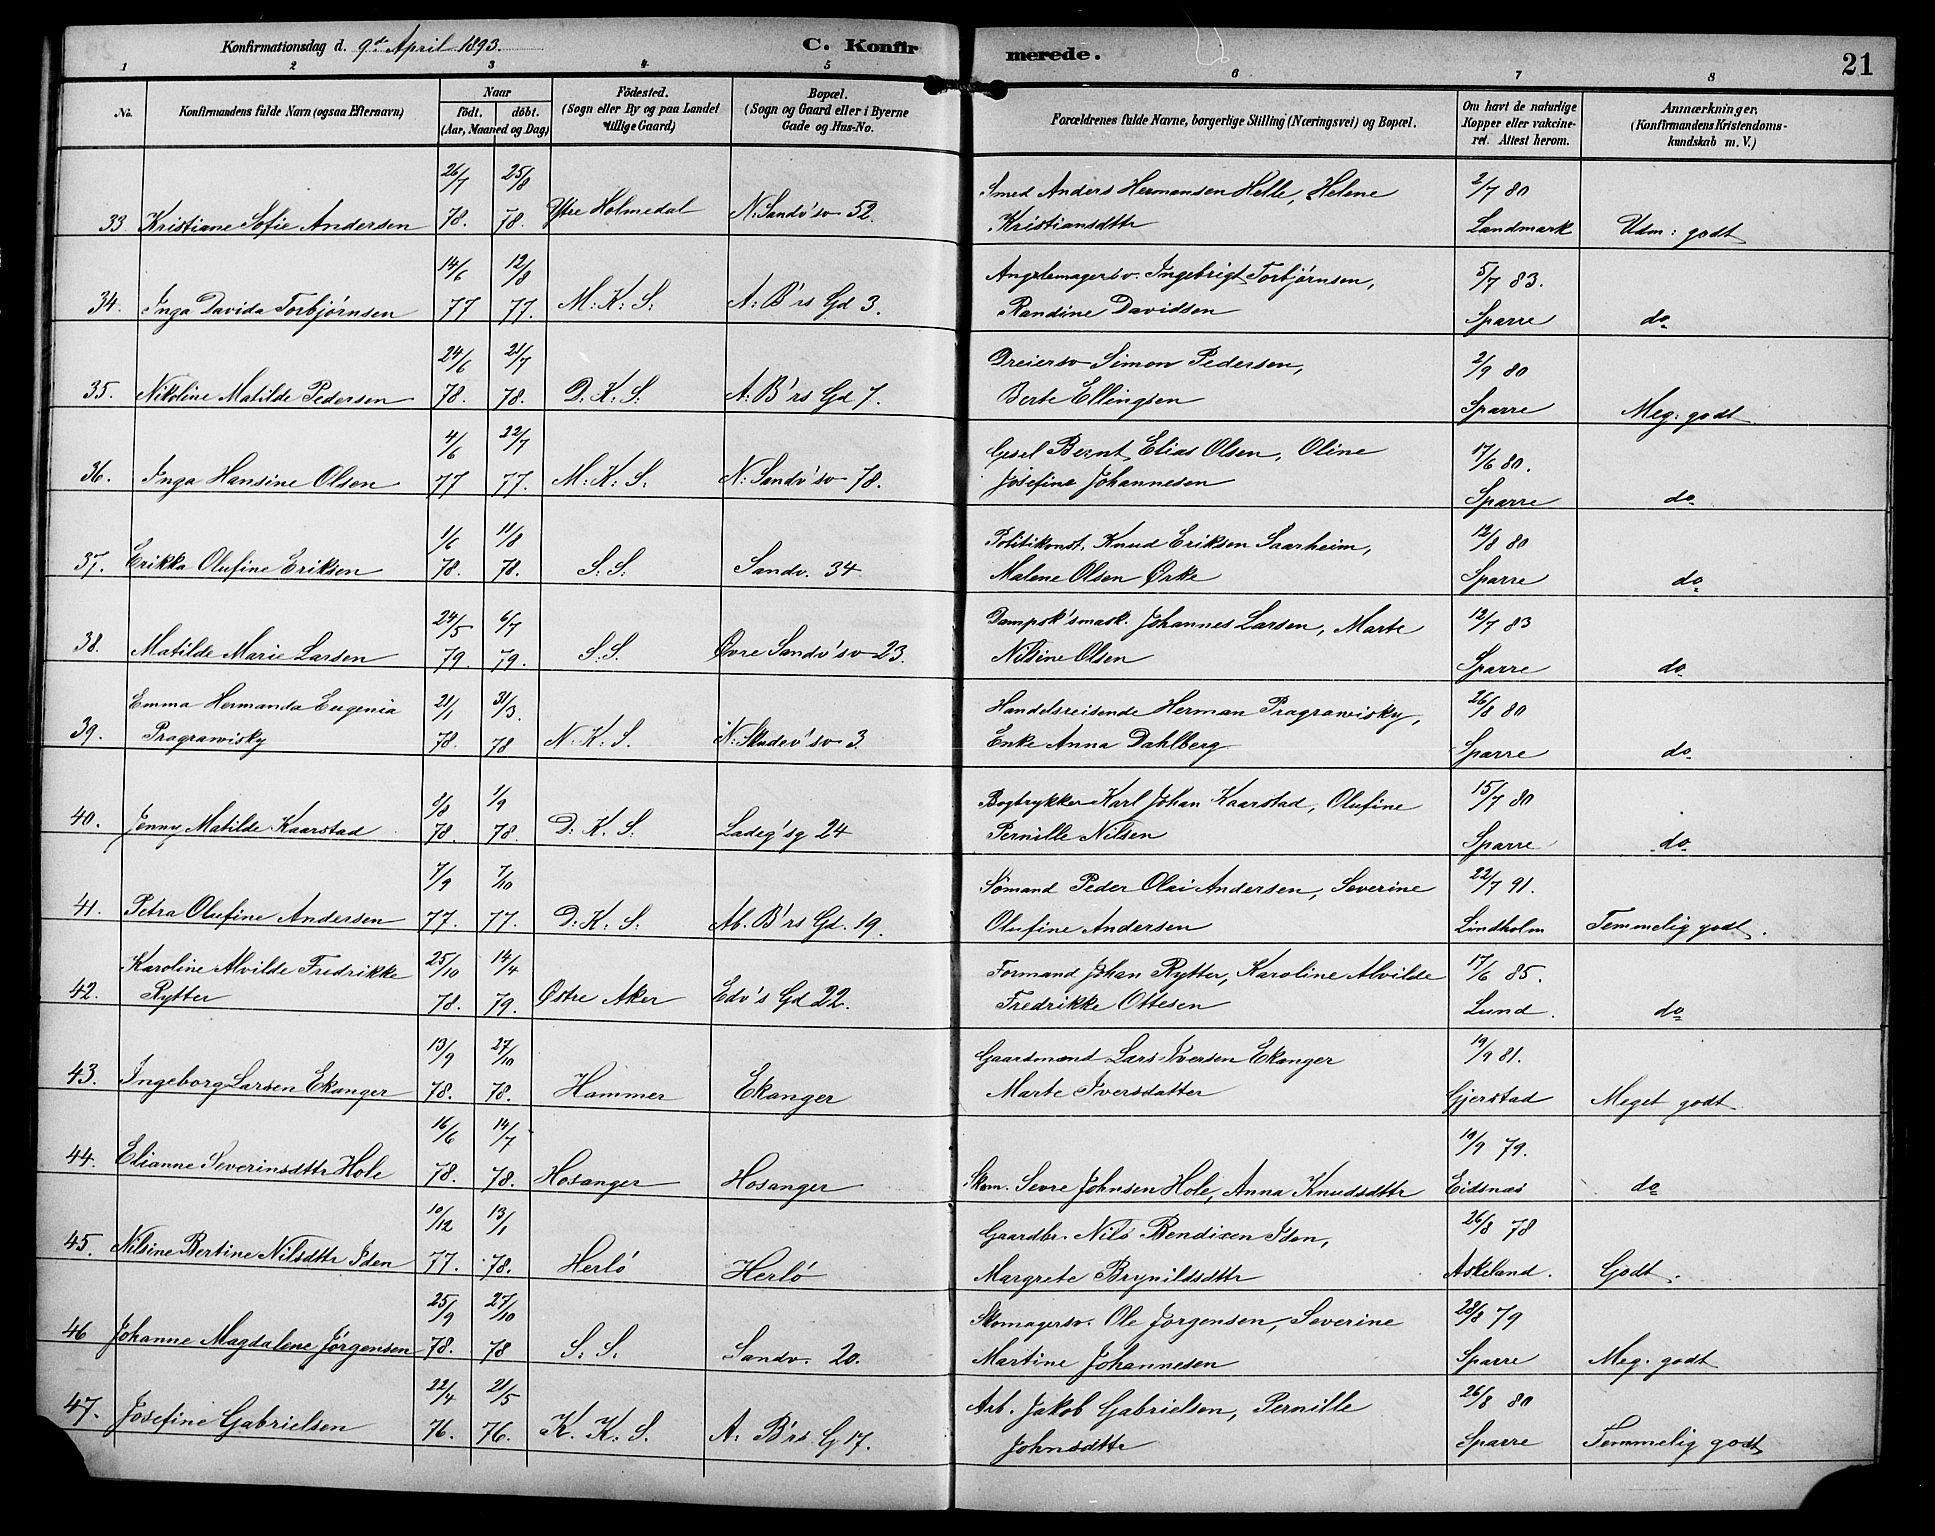 Konfirmationsdag d. 9de April 1893. C. Konfirmerede. 21
1 2 3 4 5 6 7 8
No. Konfirmandens fulde Navn (ogsaa Efternavn) Naar født. døbt. (Aar, Maaned og Dag) Fødested. (Sogn eller By og paa Landet tillige Gaard) Bopæl. (Sogn og Gaard eller i Byerne Gade og Hus-No. Forældrenes fulde Navne, borgerlige Stilling (Næringsvei) og Bopæl. Om havt de naturlige Kopper eller vakcineret. Attest herom. Anmærkninger, (Konfirmandens Kristendomskundskab m. V.)
26/7 25/8 Smed Anders Hermansen Helle, Helene 2/7 80
33. Kristiane Sofie Andersen 78. 78. Ytre Holmedal N. Sandv'sv 52. Kristiansdttr Landmark Udm: godt
14/6 12/8 Ingebrigt Torbjørnsen, 5/7 83.
34. Inga Davida Torbjørnsen 77 77. M: K: S: A: B'rs Gd 3. Randine Davidsen Sparre do
24/6 21/7 Dreiersv Simon Pedersen, 2/9 80
35. Nikoline Matilde Pedersen 78. 78. D: K: S: A: B'rs Gd 7. Berte Ellingsen Sparre Meg: godt
4/6 22/7 Gesel Bernt Elias Olsen, Oline 17/6 80.
36. Inga Hansine Olsen 77 77. M: K: S: N: Sandv'sv 78. Josefine Johannesen Sparre do
1/6 11/8 Politikonst. Knud Eriksen Saarheim, 12/8 80
37. Erikka Olufine Eriksen 78. 78. S: S: Sandv. 34 Malene Olsen Ørke Sparre do
24/5 6/7 Dampsk'smask. Johannes Larsen, Marte 12/7 83
38. Matilde Marie Larsen 79. 79. S.S. Øvre Sandv'sv 23. Nilsine Olsen Sparre do
Emma Hermanda Eugenia 21/1 31/3. Handelsreisende Herman Pragrawisky, 26/8 80
39. Pragrawisky 78. 78 N. K. S. 3. Enke Anna Dahlberg Sparre do
1/9 Bogtrykker Karl Johan Kaarstad, Olufine 15/7 80
40. Jenny Matilde Kaarstad 78. 78. D: K. S: Ladeg'sg 24 Pernille Nilsen Sparre do
7/9 7/10 Sømand Peder Olai Andersen, Severine 22/7 91.
41. Petra Olufine Andersen 77. 77. D: K: S: Ab. B'rs Gd. 19. Olufine Andersen Lindholm Temmelig godt.
Karoline Alvilde Fredrikke 25/10 14/4 Formand Johan Rytter, Karoline Alvilde 17/6 85.
42. Rytter 78. 79. Østre Aker Edv's Gd 22. Fredrikke Ottesen Lund. do
13/9 27/10 Gaardmand Lars Iversen Ekanger 19/9 81.
43. Ingeborg Larsen Ekanger 78. 78. Hammer Ekanger Marte Iversdatter Gjerstad Meget godt
16/6 14/7 19/9 79.
44. Elianne Severinsdttr Hole 78. 78. Hosanger Hosanger Skom. Sevre Johnsen Hole, Anna Knudsdttr Eidsnes do
10/12 13/1 Gaardbr. Nils Bendixen Iden, 26/8 78
45. Nilsine Bertine Nilsdttr Iden 77. 78. Herlö Herlö Margrete Brynildsdttr Askeland. Godt.
25/9 27/10 Skomagersv. Ole Jørgensen, Severine 28/8 79
46 Johanne Magdalene Jørgensen 78. 78 S. S. Sandv. 20. Martine Johannesen Sparre Meg. godt
22/4 21/5 Arb. Jakob Gabrielsen, Pernille 26/8 80
47. Josefine Gabrielsen 76. 76. K. K. S. A. B'rs G 17. Johnsdttr Sparre Temmelig godt